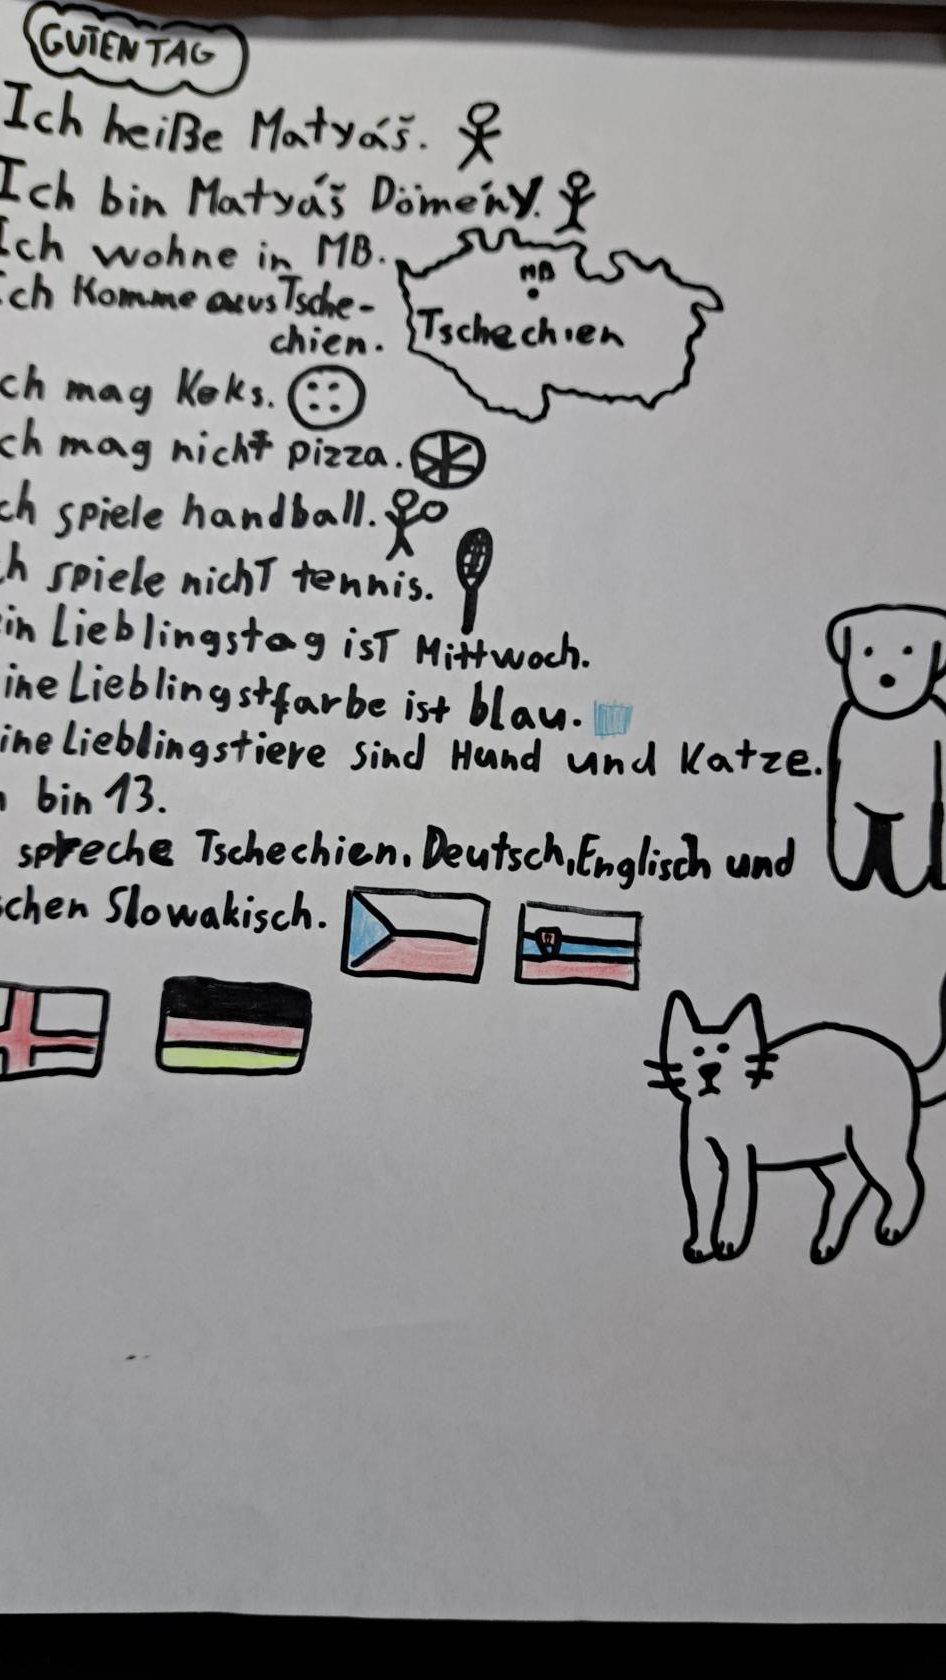 GUTEN TAG
Ich heiße Matyáš.
Ich bin Matyáš Dömény.
Ich wohne in MB.
Ich Komme aus Tsche-
chien.
MB
Tschechien
ch mag Keks.
ch mag nicht pizza.
ch spiele handball.
h spiele nicht tennis.
in Lieblingstag ist Mittwoch.
ine Lieblingstfarbe ist blau.
ine Lieblingstiere sind Hund und Katze.
bin 13.
spreche Tschechien, Deutsch, Englisch und
schen Slowakisch.